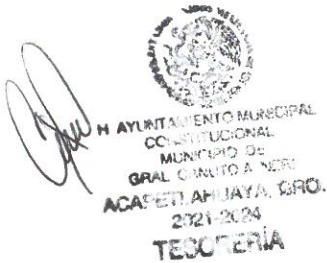 H AYUNTAMIENTO MUNICIPAL
CONSTITUCIONAL
MUNICIPIO DE
GRAL CANUTO A. NERI
ACAPETLAHUAYA, GRO.
2021-2024
TESORERÍA